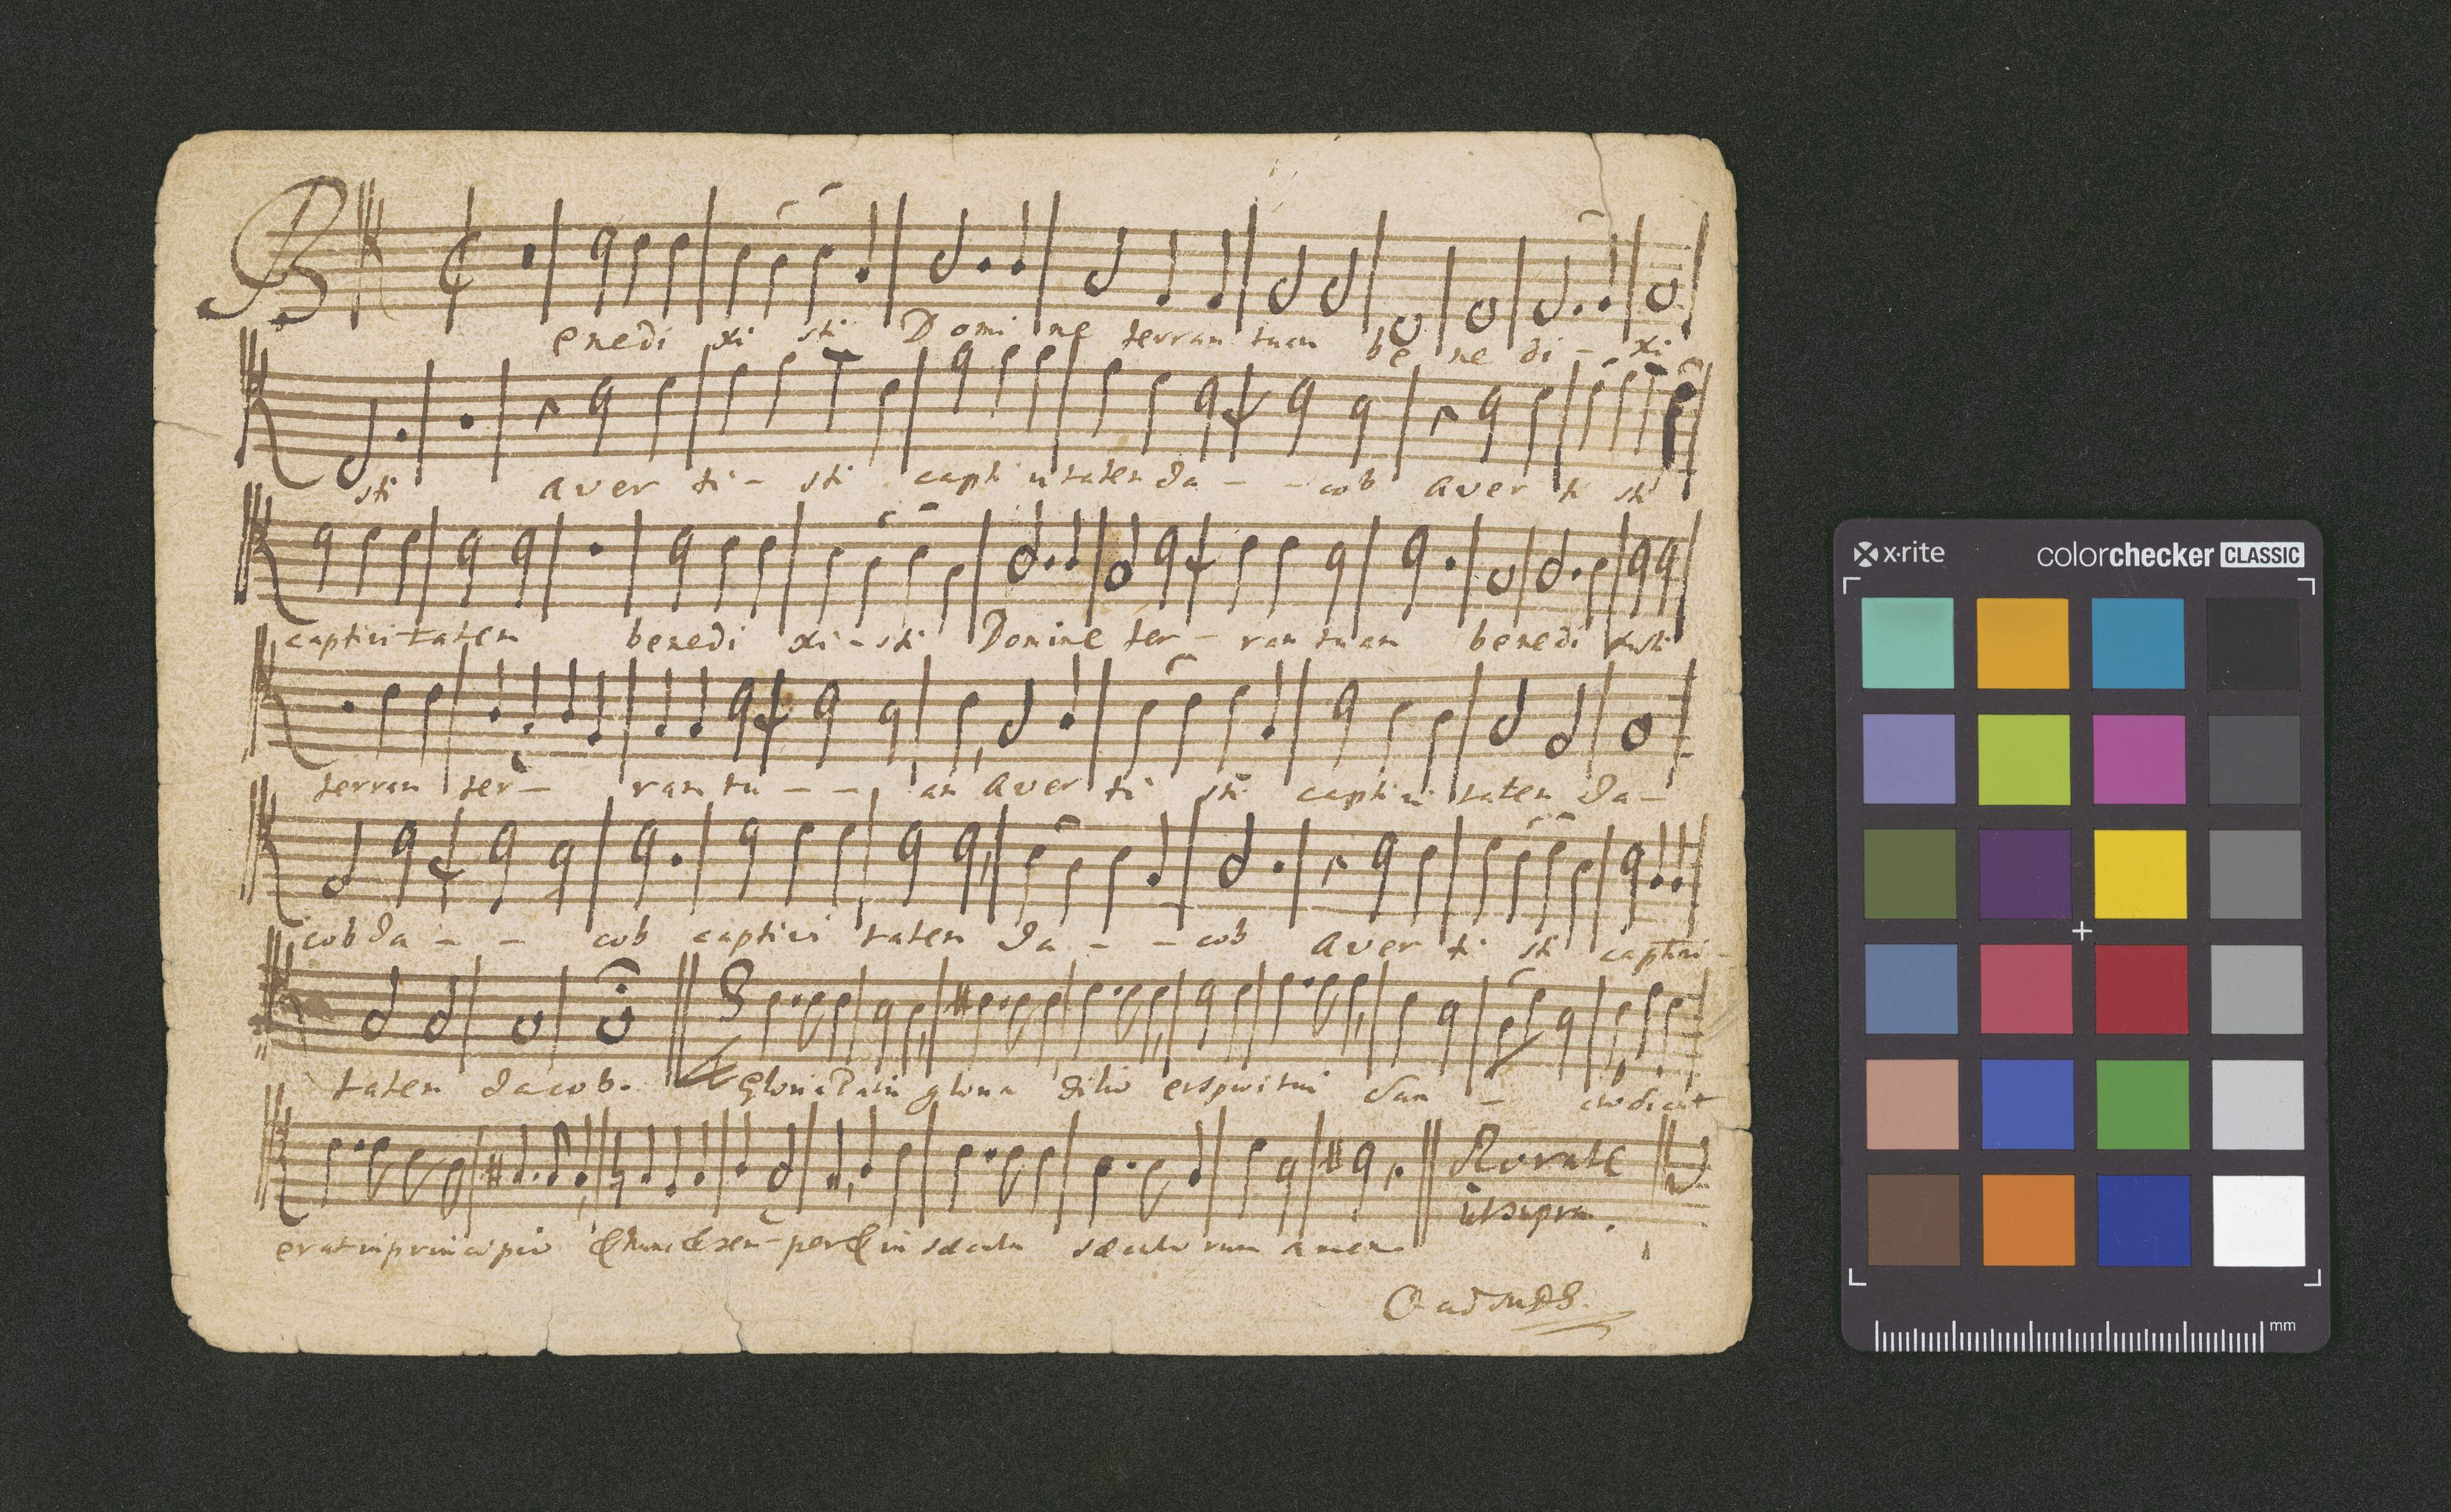 Benedi xi sti Domi ne terram tuam be ne di - xi
sti aver ti - sti capti vitatem Ja - - cob aver ti sti
captivi tatem benedi xi - sti Domine ter - ram tuam benedi xisti
terram ter - ram tu - - am aver ti sti captivi tatem Ja -
cob Ja - - cob captivi tatem Ja - - cob aver ti sti captivi -
tatem Jacob. Gloria Patri gloria filio et spiritui San - cto sicut
erat in principio & nunc & sem - per & in sæcula sæculorum amen
Rorate
ut supra.
x·rite
colorchecker CLASSIC
mm